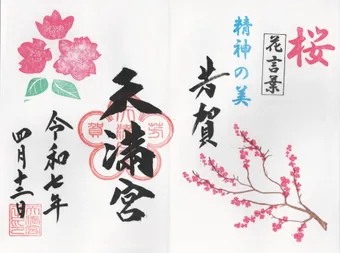 桜
花言葉
精神の美
芳賀
天満宮
芳
賀
令和七年
四月十三日